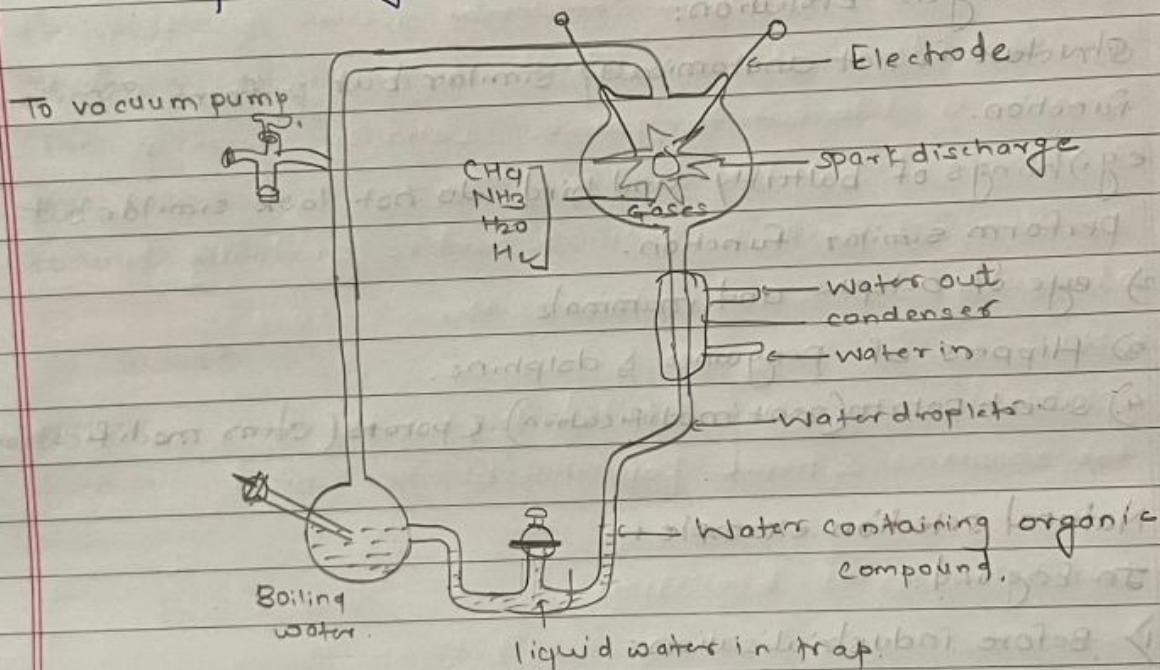 Electrode
To vacuum pump
spark discharge
CH4
NH3
H2O
H2
Gases
Water out
condenser
Water in
Water droplets
Water containing organic
compound.
Boiling
water.
liquid water in trap.